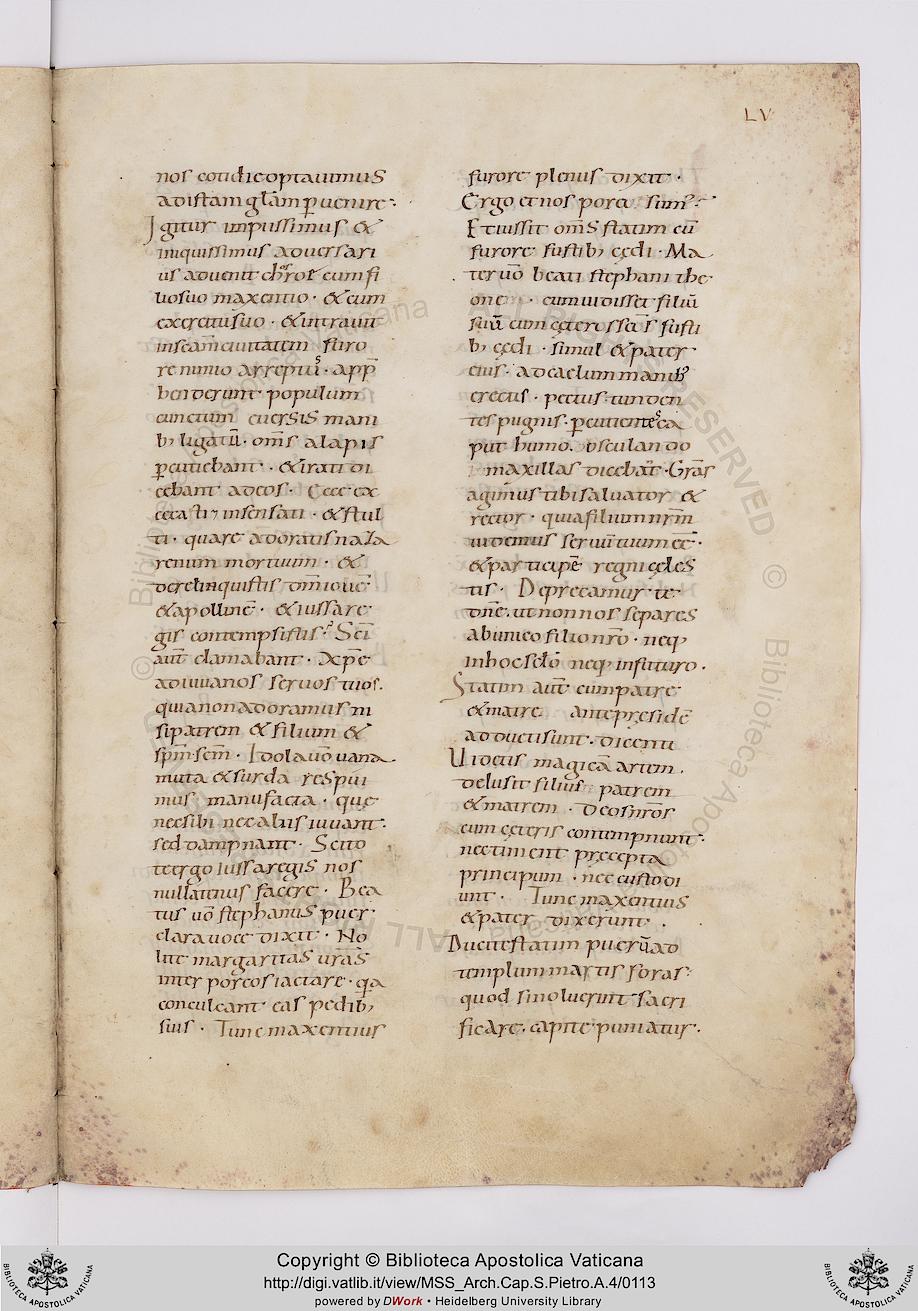 LV
nos cotidie optauimus
ad istam gl̄am ꝑuenire·
Igitur impiissimus &
iniquissimus aduersari
us aduenit cum fi
uo suo maxentio · & cum
exercitu suo · & intrauit
in sc̄am ciuitatem furo
re nimio arreptus · app̄
henderunt populum
cunctum euersis mani
b; ligatū · om̄s alapis
ꝑcutiebant · & irati di
cebant ad eos · Ecce ex
cecati & insensati · & stul
ti · quare adoratis naza
renum mortuum · &
derelinquistis dm̄ ioue
& apollinē · & iussa re
gis contempsistis · Sc̄i
aut̄ clamabant · Xp̄e
adiuua nos seruos tuos·
quia non adoramus ni
si patrem & filium &
sp̄m sc̄m · Idola uō uana
muta & surda respui
mus manufacta · quę
nec sibi nec aliis iuuant·
sed dampnant · Scito
te ergo iussa regis nos
nullatenus facere · Bea
tus uō stephanus puer·
clara uoce dixit · No
lite margaritas ur̄as
inter porcos iactare · qa
conculcant eas pedib;
suis · Tunc maxentius
furore plenus dixit ·
Ergo et nos porci sum̄·
Et iussit om̄s statim cū
furore fustib; cędi · Ma
ter uō beati stephani the
one · cum uidisset filiū
suū cum ceteros sc̄os fusti
b; cędi · simul & pater
eius · ad caelum manib;
erectis · pectus tunden
tes pugnis · ꝑcutientes ca
put humo · osculando
maxillas dicebat · Gr̄as
agimus tibi saluator &
rector · quia filium nr̄m
uidemus seruū tuum eē·
& participē regni cęles
tis · Deprecamur te
dn̄e · ut non nos separes
ab unico filio nr̄o · neq;
in hoc sclō neq; in futuro ·
Statim aut̄ cum patre
& matre ante presidē
adducti sunt · dicenti
Uiotus magicā artem ·
delusit filius patrem
& matrem · deos nr̄os
cum ceteris contempnunt·
nec timent pręcepta
principum · nec custodi
unt · Tunc maxentius
& pater dixerunt ·
Ducite statim puerū ad
templum martis foras·
quod si noluerint sacri
ficare · capite puniatur ·
Copyright © Biblioteca Apostolica Vaticana
http://digi.vatlib.it/view/MSS_Arch.Cap.S.Pietro.A.4/0113
powered by DWork • Heidelberg University Library